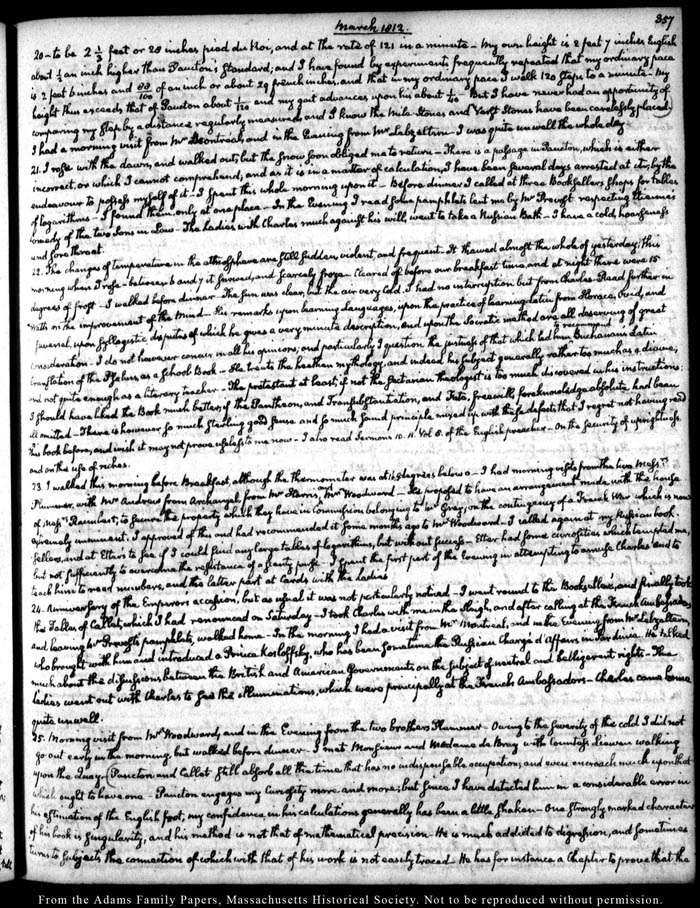 March 1812.
357
20 - to be 2 1/3 feet or 28 inches pied du Roi, and at the rate of 121 in a minute - My own height is 5 feet 7 inches English
about 1/2 an inch higher than Paucton's Standard; and I have found by experiments frequently repeated that my ordinary pace
is 2 feet 6 inches and 88/100 of an inch or about 29 french inches, and that in my ordinary pace I walk 120 steps to a minute - My
height thus exceeds that of Paucton about and my gait advances upon his about - But I have never had an opportunity of
comparing my step by a distance regularly measured, and I know the Mile-Stones and Verst Stones have been carelessly placed
I had a morning visit from Mr Montreal and in the Evening from Mr Labzaltern - I was quite unwell the whole day
21. I rose with the dawn, and walked out, but the snow soon obliged me to return - There is a passage in Paucton, which is either
incorrect or which I cannot comprehend, and as it is in a matter of calculation, I have been several days arrested at it, by the
endeavour to possess myself of it - I spent this whole morning upon it - Before dinner I called at three Booksellers Shops for Tables
of logarithms - I found them only at one place - In the Evening I read John pamphlet lent me by Mr Prevost respecting
remedy of the two Sons in Law - The ladies with Charles much against his will, went to take a Russian Bath - I have a cold, hoarseness
and sore throat
22. The changes of temperature in the atmosphere are still sudden, violent and frequent - It thawed almost the whole of yesterday; this
morning when I rose - between 6 and 7 it snowed, and scarcely froze - Cleared off before our breakfast time and at night there were 15
degrees of frost - I walked before dinner - The sun was clear, but the air very cold - I had no interruption but from Charles - Read further in
Watts on the improvement of the Mind - His remarks upon learning languages, upon the practice of learning latin from Horace, Ovid, and
Juvenal, upon syllogistic disputes of which he gives a very minute description, and upon the Socratic method are all deserving of great
consideration - I do not however concur in all his opinions, and particularly I question the justness of that which led him to recommend Buchanan's latin
translation of the Psalms, as a School Book - He treats the heathen mythology, and indeed his subject generally rather too much as a divine,
and not quite enough as a literary teacher - The protestant at least, if not the Sectarian theologist is too much discovered in his instructions;
I should have liked the Book much better, if the Pantheon, and Transubstantiation, and Fate, freewill, foreknowledge absolute, had been
all omitted - There is however so much sterling good sense and so much sound principle mixed up with these defects that I regret not having read
this book before, and wish it may not prove useless to me now - I also read Sermons 10. 11. Vol 8. of the English preacher - On the security of uprightness
and on the use of riches.
23. I walked this morning before Breakfast, although the thermometer was at 16 degrees below 0 - I had morning visits from the two Messrs
Plummer, with Mr Andrews from Archangel, from Mr Harris, Mr Woodward - He proposed to have an arrangement made with the house
of Messrs to secure the property which they have in Commission belonging to Mr Gray, on the contingency of a French War which is now
extremely imminent. I approved of this and had recommended it some months ago to Mr Woodward - I called again at my Russian book-
sellers, and at Etters to see if I could find any large tables of logarithms, but without success - Etter had some curiosities which tempted me,
but not sufficiently to overcome the resistance of a scanty purse - I spent the first part of the Evening in attempting to amuse Charles and to
teach him to read numbers, and the latter part at Cards with the ladies
24. Anniversary of the Emperor's accession, but as usual it was not particularly noticed - I went round to the Booksellers, and finally took
the Tables of Callet, which I had renounced on Saturday - I took Charles with me in the sleigh, and after calling at the French Ambassador's
and leaving Mr Prevost's pamphlets, walked home - In the morning I had a visit from Mr Montreal, and in the Evening from Mr Labzaltern,
who brought with him and introduced a Prince Kosloffsky, who has been sometime the Russian Chargé d'Affaires in Sardinia - He talked
much about the discussions between the British and American Governments on the subject of neutral and belligerent rights - The
ladies went out with Charles to see the illuminations, which were principally at the French Ambassadors - Charles came home
quite unwell.
25. Morning visit from Mr Woodward, and in the Evening from the two brothers Plummer - Owing to the severity of the cold I did not
go out early in the morning, but walked before dinner - I met Monsieur and Madame de Bray with Countess walking
upon the Quay. Paucton and Callet still absorb all the time that has no indispensable occupation; and even encroach much upon that
which ought to have one - Paucton engages my curiosity more and more; but since I have detected him in a considerable error in
his estimation of the English foot, my confidence in his calculations generally has been a little shaken - One strongly marked character
of his book is singularity, and his method is not that of mathematical precision - He is much addicted to digression, and sometimes
turns to subjects the connection of which with that of his work is not easily traced - He has for instance a Chapter to prove that the
From the Adams Family Papers, Massachusetts Historical Society. Not to be reproduced without permission.